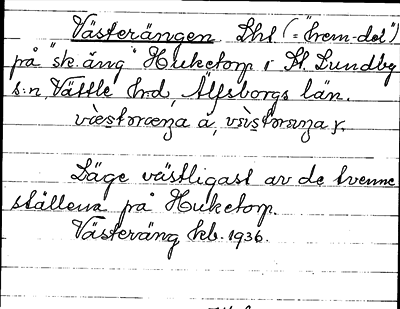 Västerängen Lht. (= "hem-del")
på "sk. äng" Huketorp i St. Lundby
s:n, Vättle hrd, Älfsborgs län.
Läge västligast av de tvenne
ställena på Huketorp.
Västeräng kb. 1936.